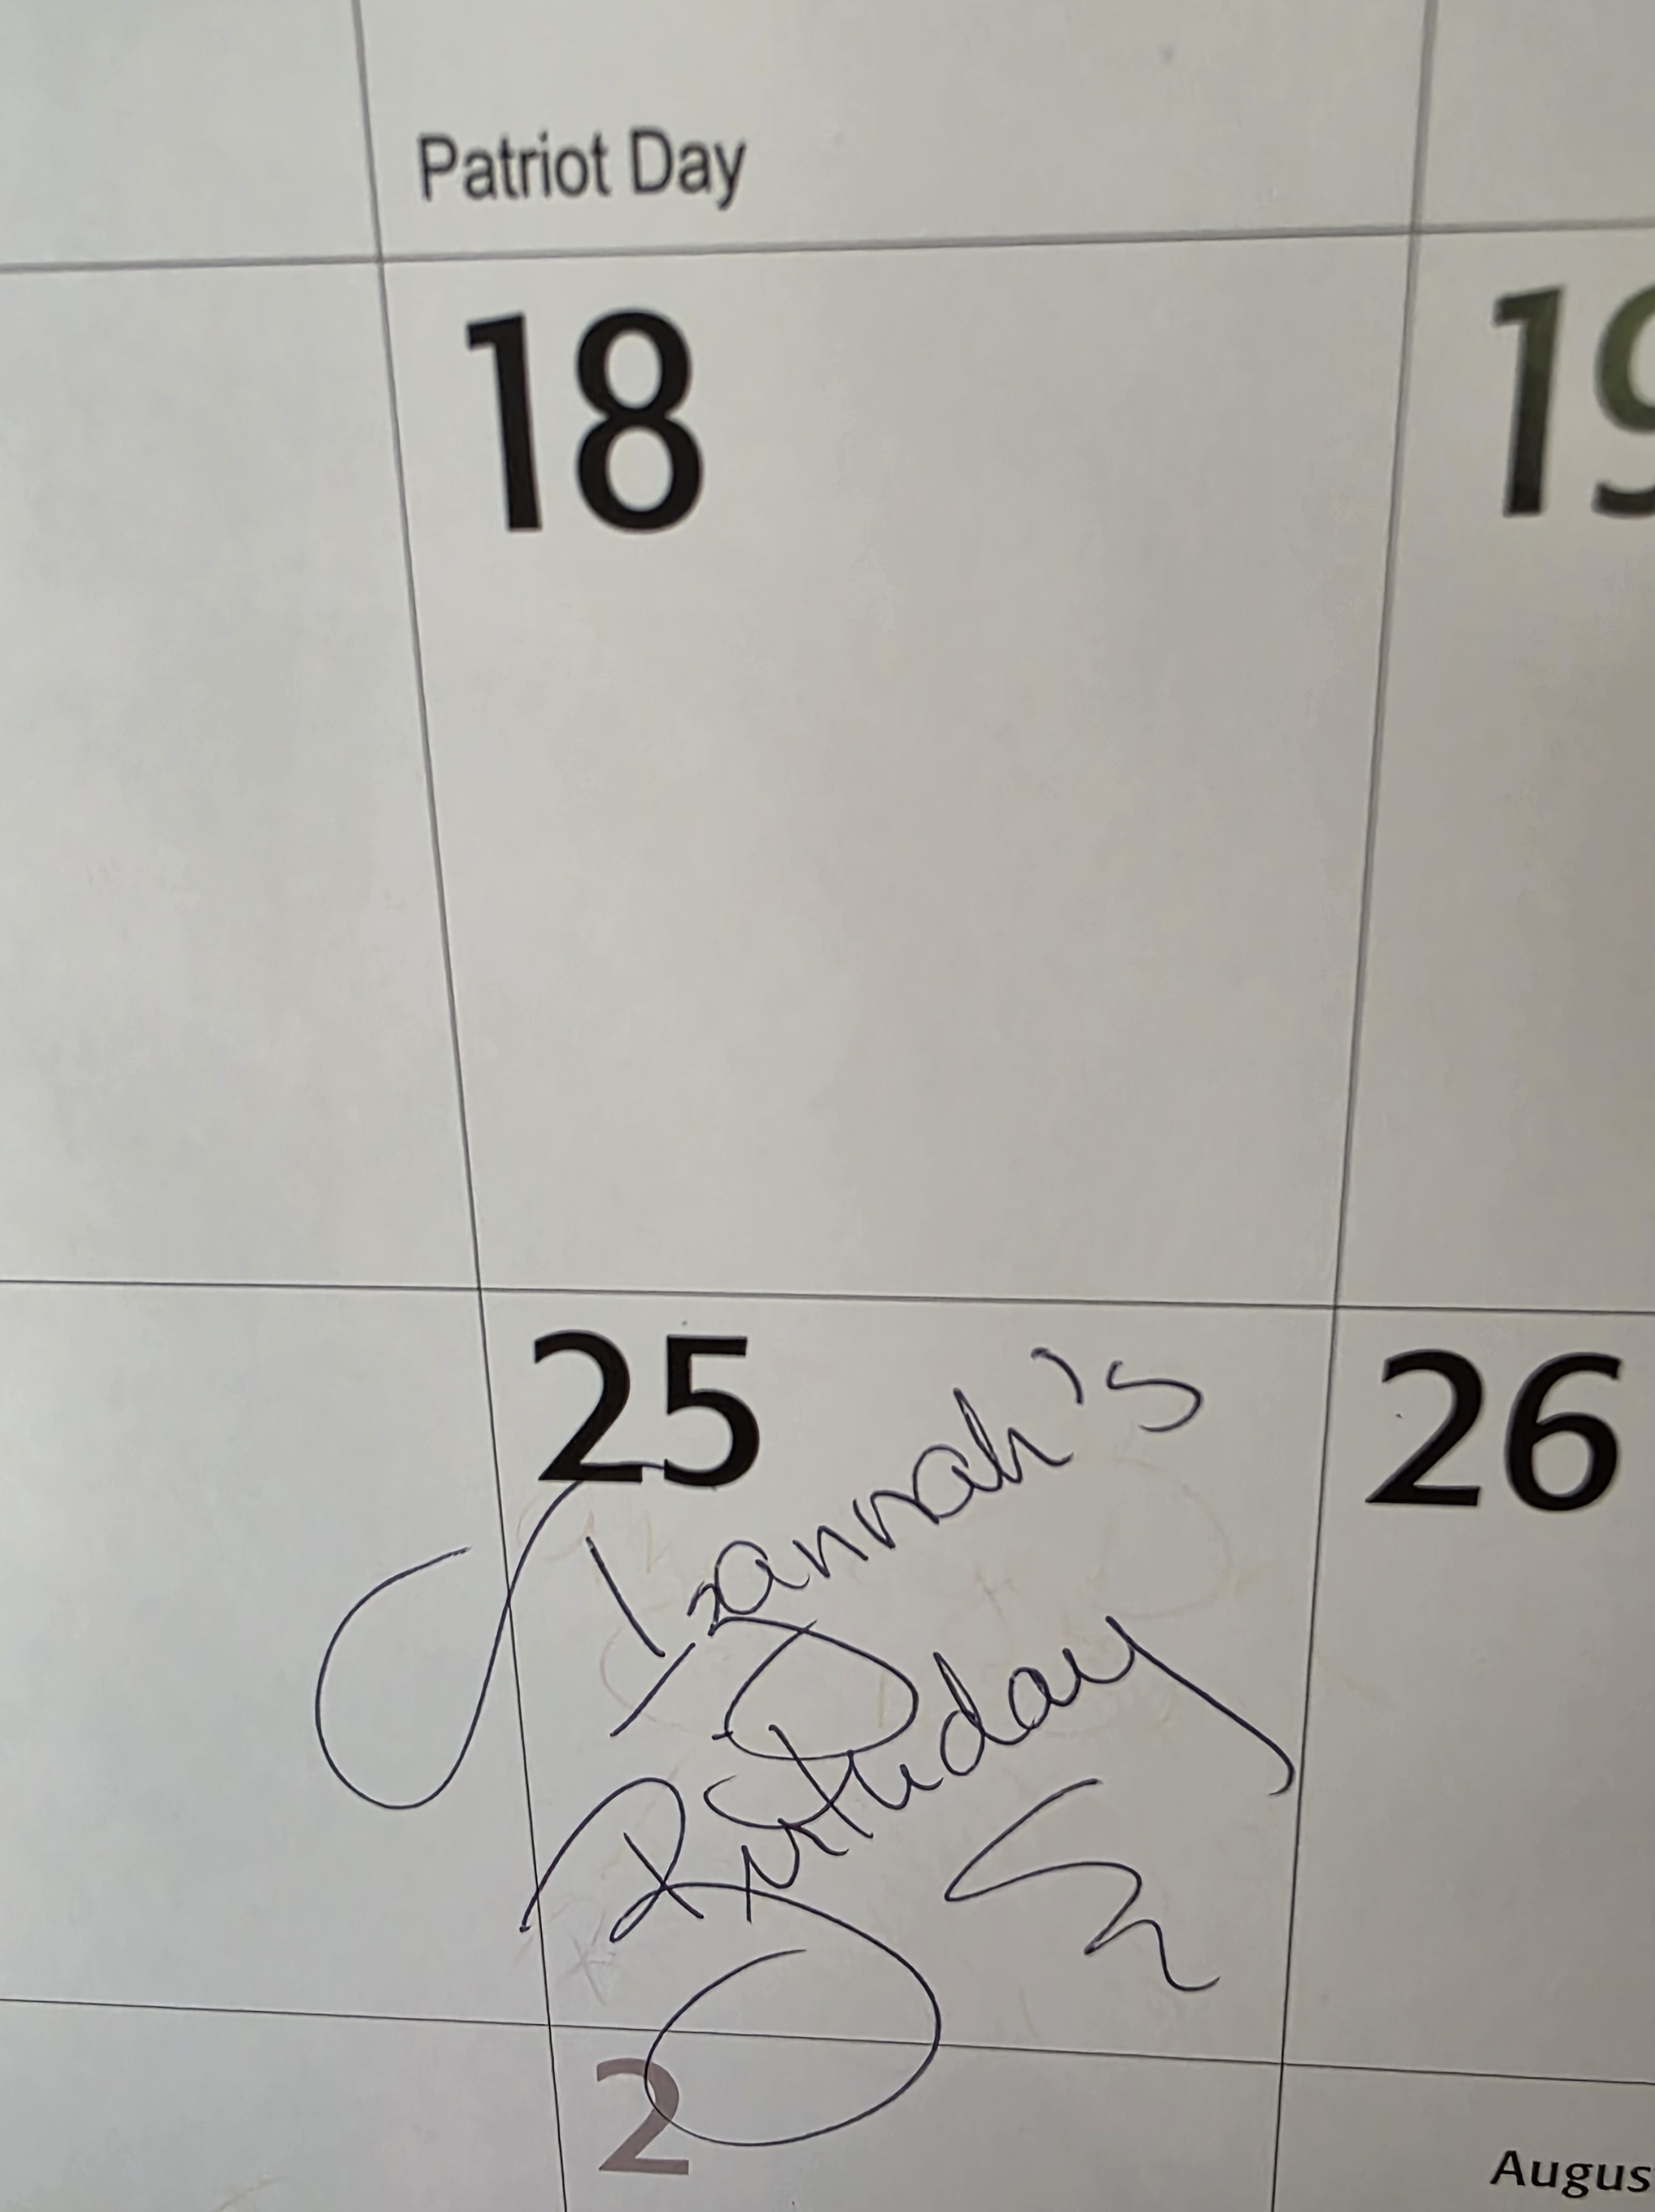 Patriot Day
18
19
25
26
Izannah's
Birthday
2
Augus